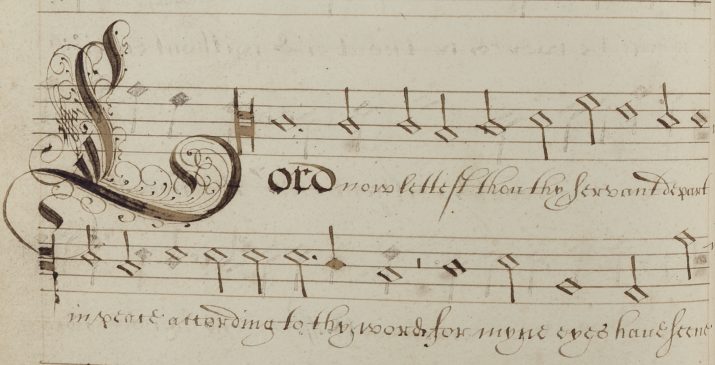 Lord now lettest thou thy servant depart
in peace according to thy word. for myne eyes have seene